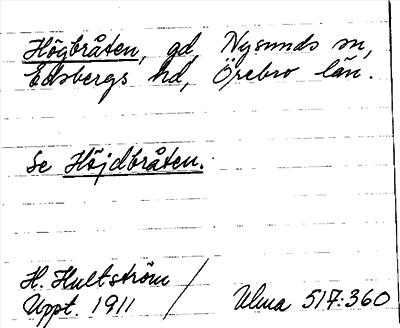 Högbråten, gd, Nysunds sn,
Edsbergs hd, Örebro län.
Se Höjdbråten.
H. Hultström /
Uppt. 1911
Ulma 517:360